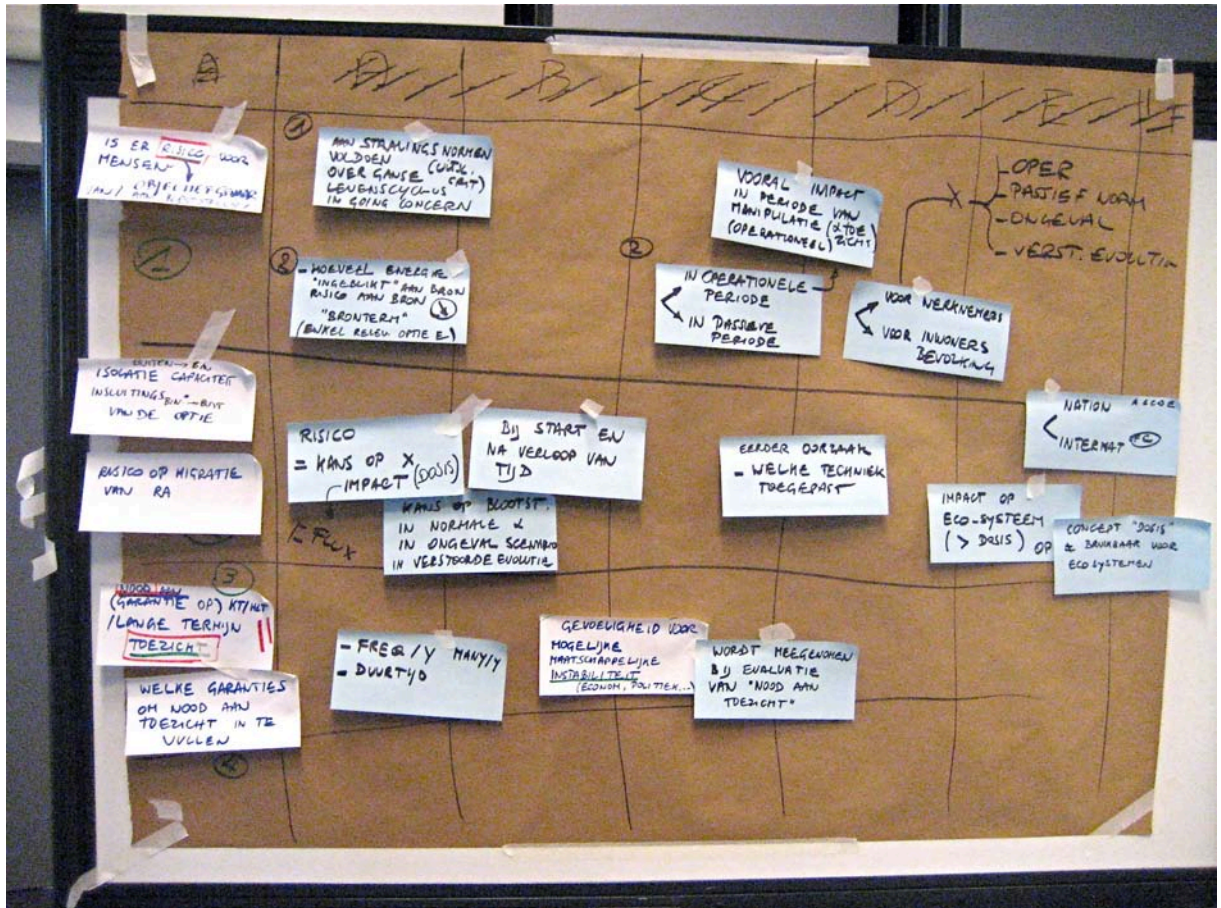 A
B
C
D
E
IS ER RISICO VOOR
MENSEN
VAN/
1
AAN STRALINGSNORMEN
VOLDOEN
OVER GANSE
LEVENSCYCLUS
IN GOING CONCERN
VOORAL IMPACT
IN PERIODE VAN
MANIPULATIE (XTOE
(OPERATIONEEL) ZICHT)
X
- OPER
- PASSIEF NORM
- ONGEVAL
- VERST. EVOLUTIE
1
2
- HOEVEEL ENERGIE
"INGEBLIKT" AAN BRON
RISICO AAN BRON
"BRONTERM"
(ENKEL RELEV OPTIE E)
2
IN OPERATIONELE
PERIODE
IN PASSIEVE
PERIODE
VOOR WERKNEMERS
VOOR INWONERS
BEVOLKING
BUITEN → EN
ISOLATIE CAPACITEIT
INSLUITINGS BIN → BUIT
VAN DE OPTIE
RISICO OP MIGRATIE
VAN RA
RISICO
= KANS OP X
IMPACT (DOSIS)
FLUX
BIJ START EN
NA VERLOOP VAN
TIJD
KANS OP BLOOTST.
IN NORMALE &
IN ONGEVAL SCENARIO
IN VERSTOORDE EVOLUTIE
EERDER OORZAAK
- WELKE TECHNIEK
TOEGEPAST
NATION
INTERNAT
IMPACT OP
ECO-SYSTEEM
(> DOSIS) OP
CONCEPT "DOSIS"
BRUIKBAAR VOOR
ECOSYSTEMEN
3
NOOD AAN
(GARANTIE OP) KT/
/LANGE TERMIJN
TOEZICHT
- FREQ/Y MANY/Y
- DUURTIJD
GEVOELIGHEID VOOR
MOGELIJKE
MAATSCHAPPELIJKE
INSTABILITEIT
(ECONOM, POLITIEK...)
WORDT MEEGENOMEN
BIJ EVALUATIE
VAN "NOOD AAN
TOEZICHT"
WELKE GARANTIES
OM NOOD AAN
TOEZICHT IN TE
VULLEN
4